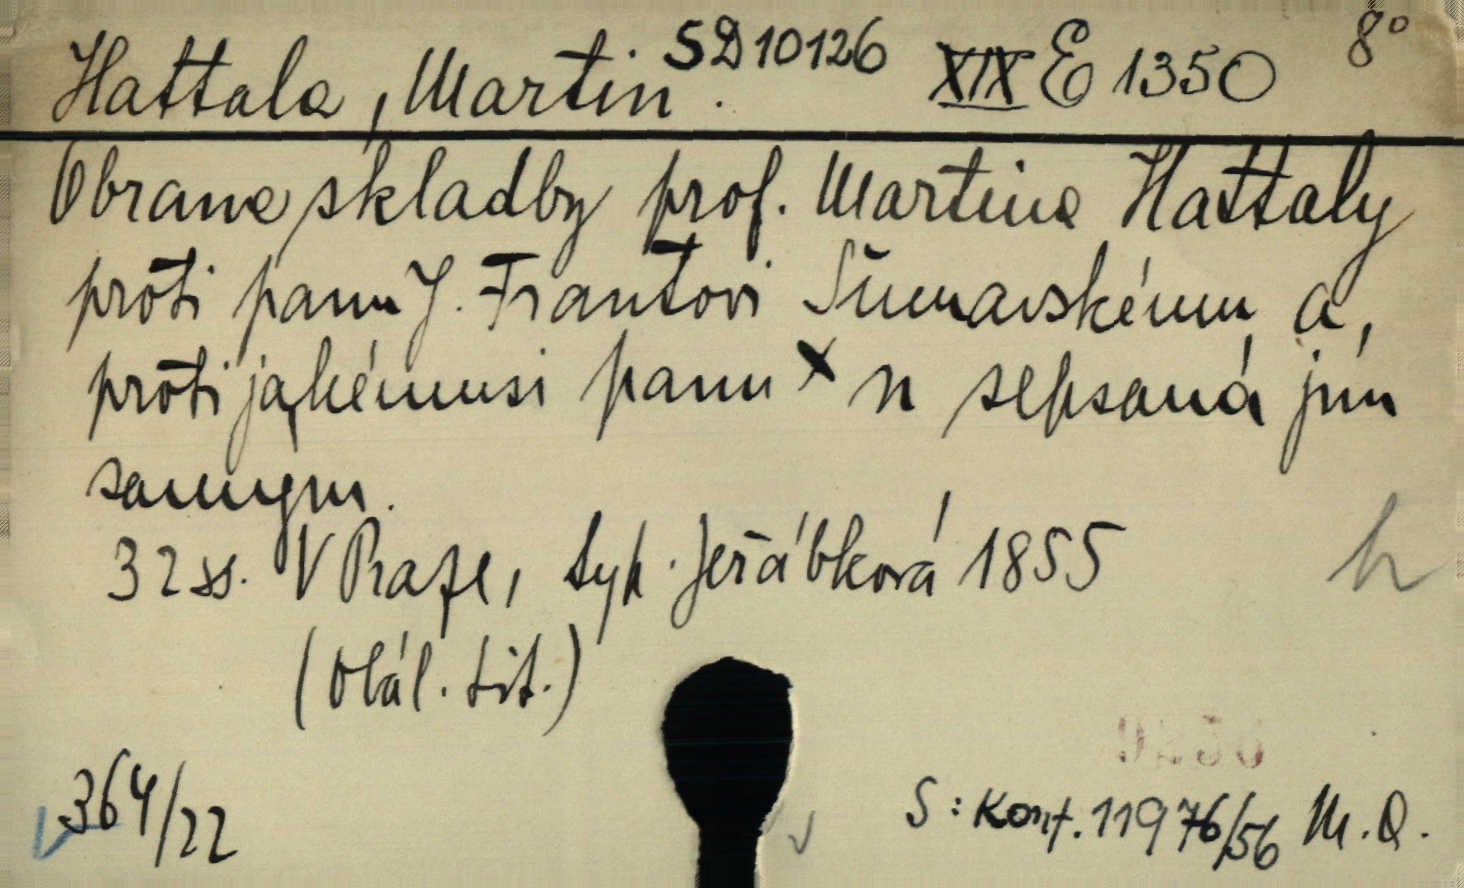 Hattala, Martin. SD 10126 XIX E 1350 8°
Obrana skladby prof. Martina Hattaly
proti panu J. Frantovi Šumavskému a,
proti jakémusi panu X n sepsaná jím
samým.
32 ss. V Praze, typ. Jeřábková 1855
(Obál. tit.)
h
364/22
S: Konf. 11976/56 M. Q.